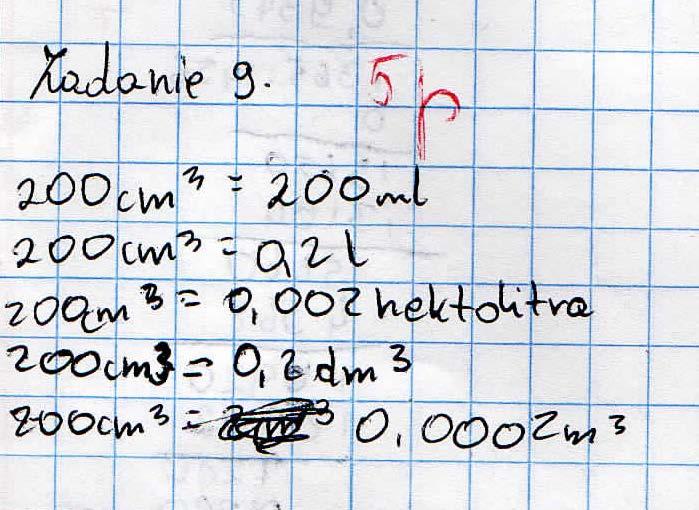 Zadanie 9. 5p
200cm³ = 200ml
200cm³ = 0,2l
200cm³ = 0,002 hektolitra
200cm³ = 0,2dm³
200cm³ = 0,0002m³